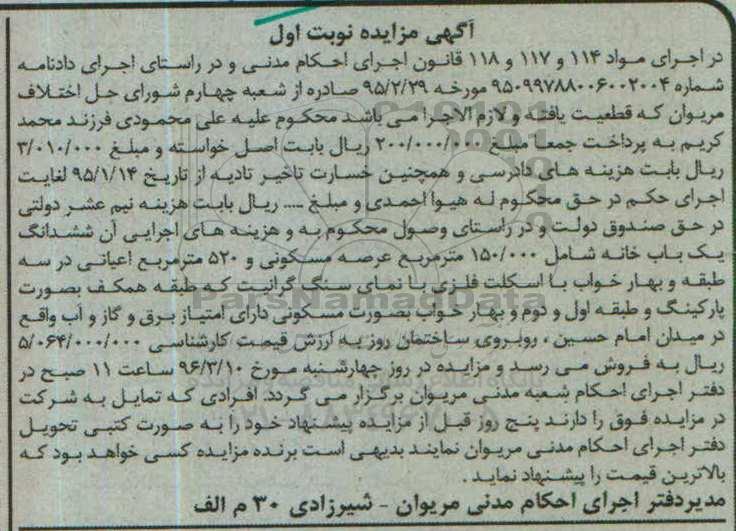 آگهی مزایده نوبت اول
در اجرای مواد ۱۱۴ و ۱۱۷ و ۱۱۸ قانون اجرای احکام مدنی و در راستای اجرای دادنامه
شماره ۹۵۰۹۹۷۸۸۰۰۶۰۰۲۰۰۴ مورخه ۹۵/۲/۲۹ صادره از شعبه چهارم شورای حل اختلاف
مریوان که قطعیت یافته و لازم الاجرا می باشد محکوم علیه علی محمودی فرزند محمد
کریم به پرداخت جمعا مبلغ ۲۰۰/۰۰۰/۰۰۰ ریال بابت اصل خواسته و مبلغ ۳/۰۱۰/۰۰۰
ریال بابت هزینه های دادرسی و همچنین خسارت تاخیر تادیه از تاریخ ۹۵/۱/۱۴ لغایت
اجرای حکم در حق محکوم له هیوا احمدی و مبلغ ..... ریال بابت هزینه نیم عشر دولتی
در حق صندوق دولت و در راستای وصول محکوم به و هزینه های اجرایی آن ششدانگ
یک باب خانه شامل ۱۵۰/۰۰۰ مترمربع عرصه مسکونی و ۵۲۰ مترمربع اعیانی در سه
طبقه و بهار خواب با اسکلت فلزی با نمای سنگ گرانیت که طبقه همکف بصورت
پارکینگ و طبقه اول و دوم و بهار خواب بصورت مسکونی دارای امتیاز برق و گاز و آب واقع
در میدان امام حسین ، روبروی ساختمان روز به ارزش قیمت کارشناسی ۵/۰۶۴/۰۰۰/۰۰۰
ریال به فروش می رسد و مزایده در روز چهارشنبه مورخ ۹۶/۳/۱۰ ساعت ۱۱ صبح در
دفتر اجرای احکام شعبه مدنی مریوان برگزار می گردد. افرادی که تمایل به شرکت
در مزایده فوق را دارند پنج روز قبل از مزایده پیشنهاد خود را به صورت کتبی تحویل
دفتر اجرای احکام مدنی مریوان نمایند بدیهی است برنده مزایده کسی خواهد بود که
بالاترین قیمت را پیشنهاد نماید .
مدیردفتر اجرای احکام مدنی مریوان - شیرزادی ۳۰ م الف
ParsNamadData